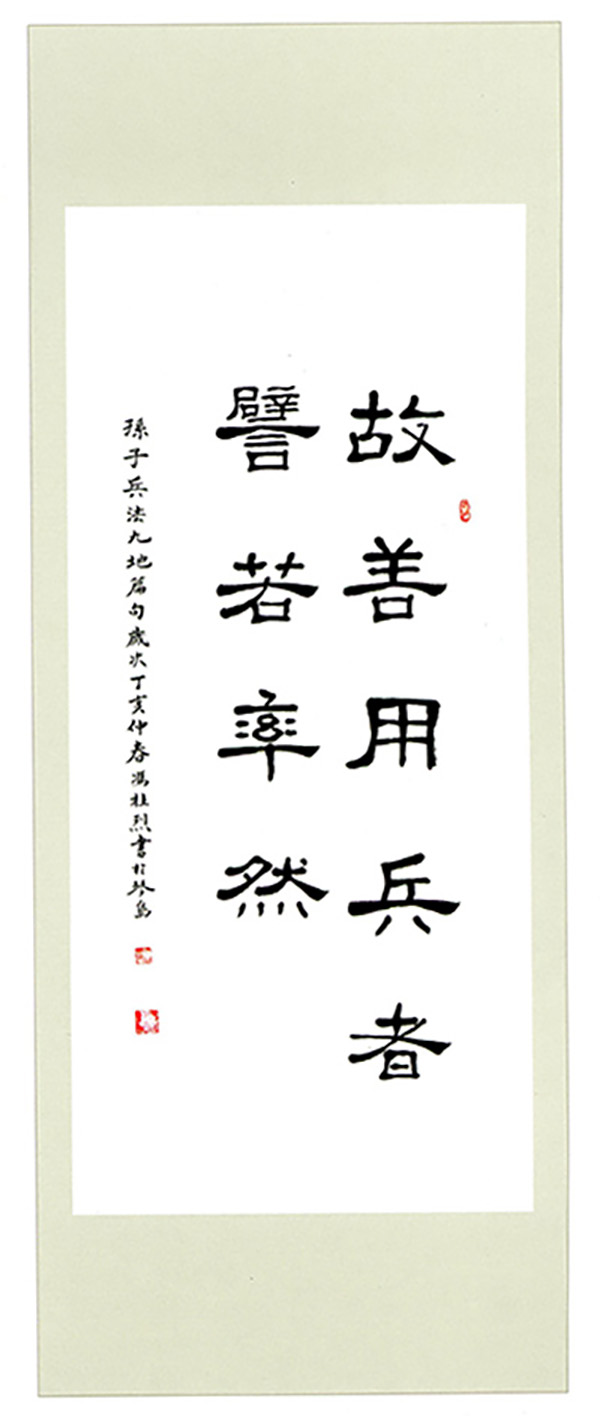 故善用兵者
譬若率然
孫子兵法九地篇句歲次丁亥仲春馮桂烈書於琴島